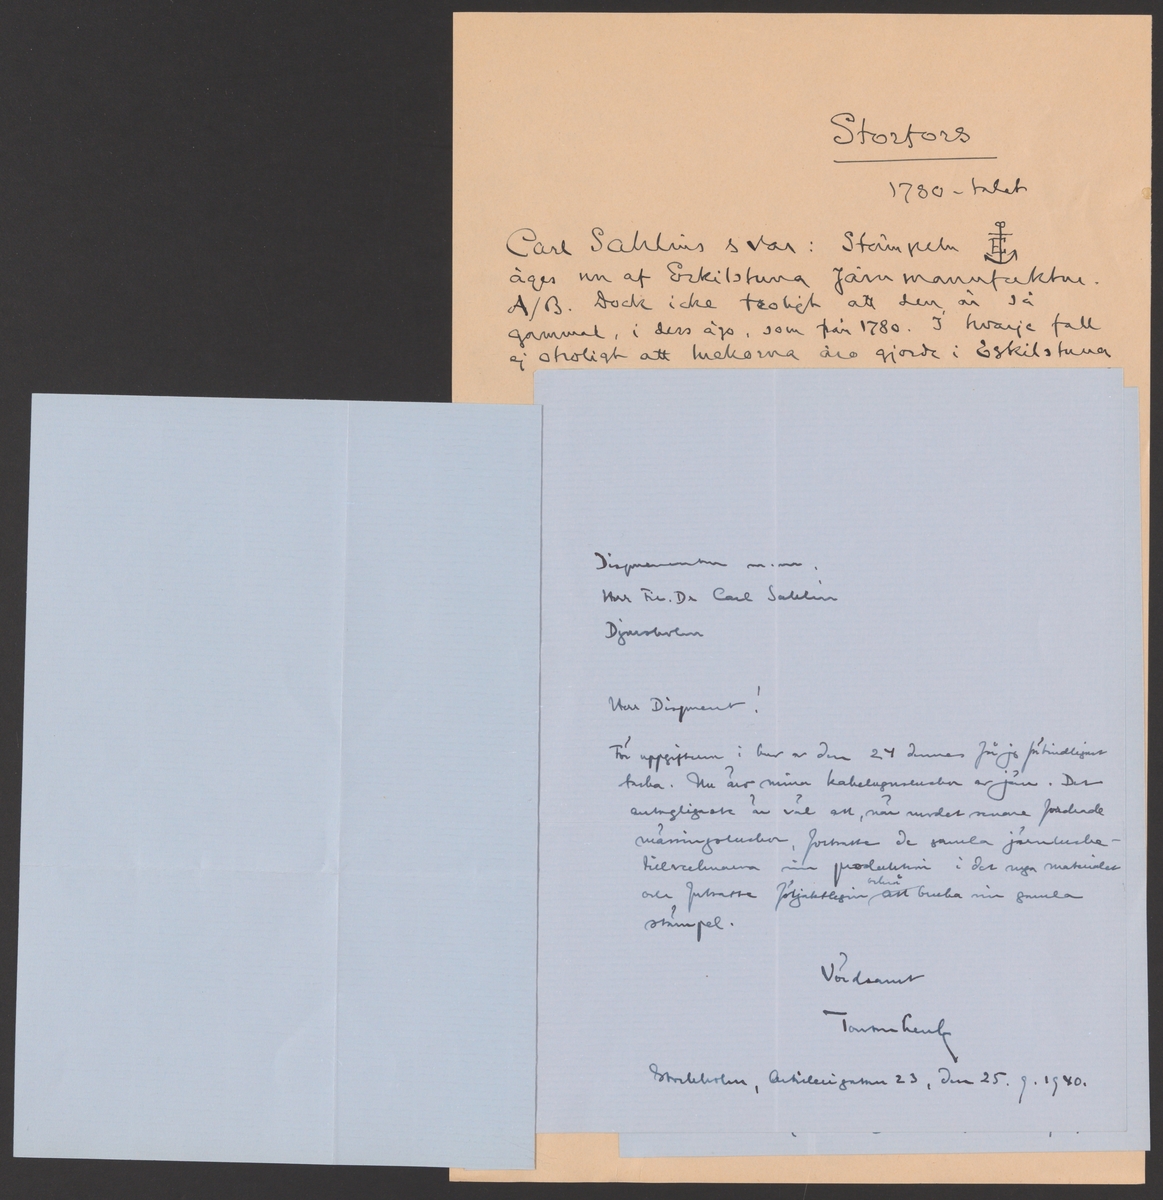 Storfors
1780-talet
Carl Sahlins svar: Stämpeln E
äges nu af Eskilstuna Järnmanufaktur.
A/B. Dock icke troligt att den är så
gammal, i ders ägo, som från 1780. I hvarje fall
ej otroligt att luckorna äro gjorda i Eskilstuna
Disponenten m.m.
Herr Fil. Dr Carl Sahlin
Djursholm
Herr Disponent!
För uppgiften i brev av den 24 dennes får jag förbindligast
tacka. Nu äro mina kakelugnsluckor av järn. Det
antagligaste är väl att, när modet senare fordrade
mässingsluckor, fortsatte de gamla järnlucke-
tillverkarna sin produktion i det nya materialet
och fortsatte också att bruka sin gamla
stämpel.
Vördsamt
Stockholm, Artillerigatan 23, den 25. 9. 1940.